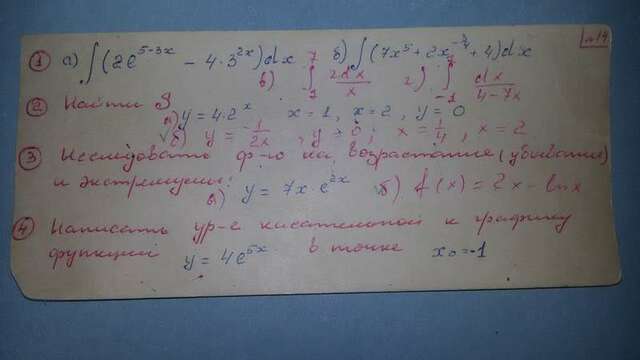 №14
① а) ∫(2e^(5-3x) - 4·3^(2x))dx б) ∫(7x⁵ + 2x^(-3/7) + 4)dx
в) ∫₁⁷ 2dx/x г) ∫₋₁⁷ dx/(4-7x)
② Найти S
а) y = 4·2^x x = 1, x = 2, y = 0
б) y = -1/(2x), y = 0; x = 1/4, x = 2
③ Исследовать ф-ю на возрастание (убывание)
и экстремумы: а) y = 7x·e^(2x) б) f(x) = 2x - lnx
④ Написать ур-е касательной к графику
функции y = 4e^(5x) в точке x₀ = -1